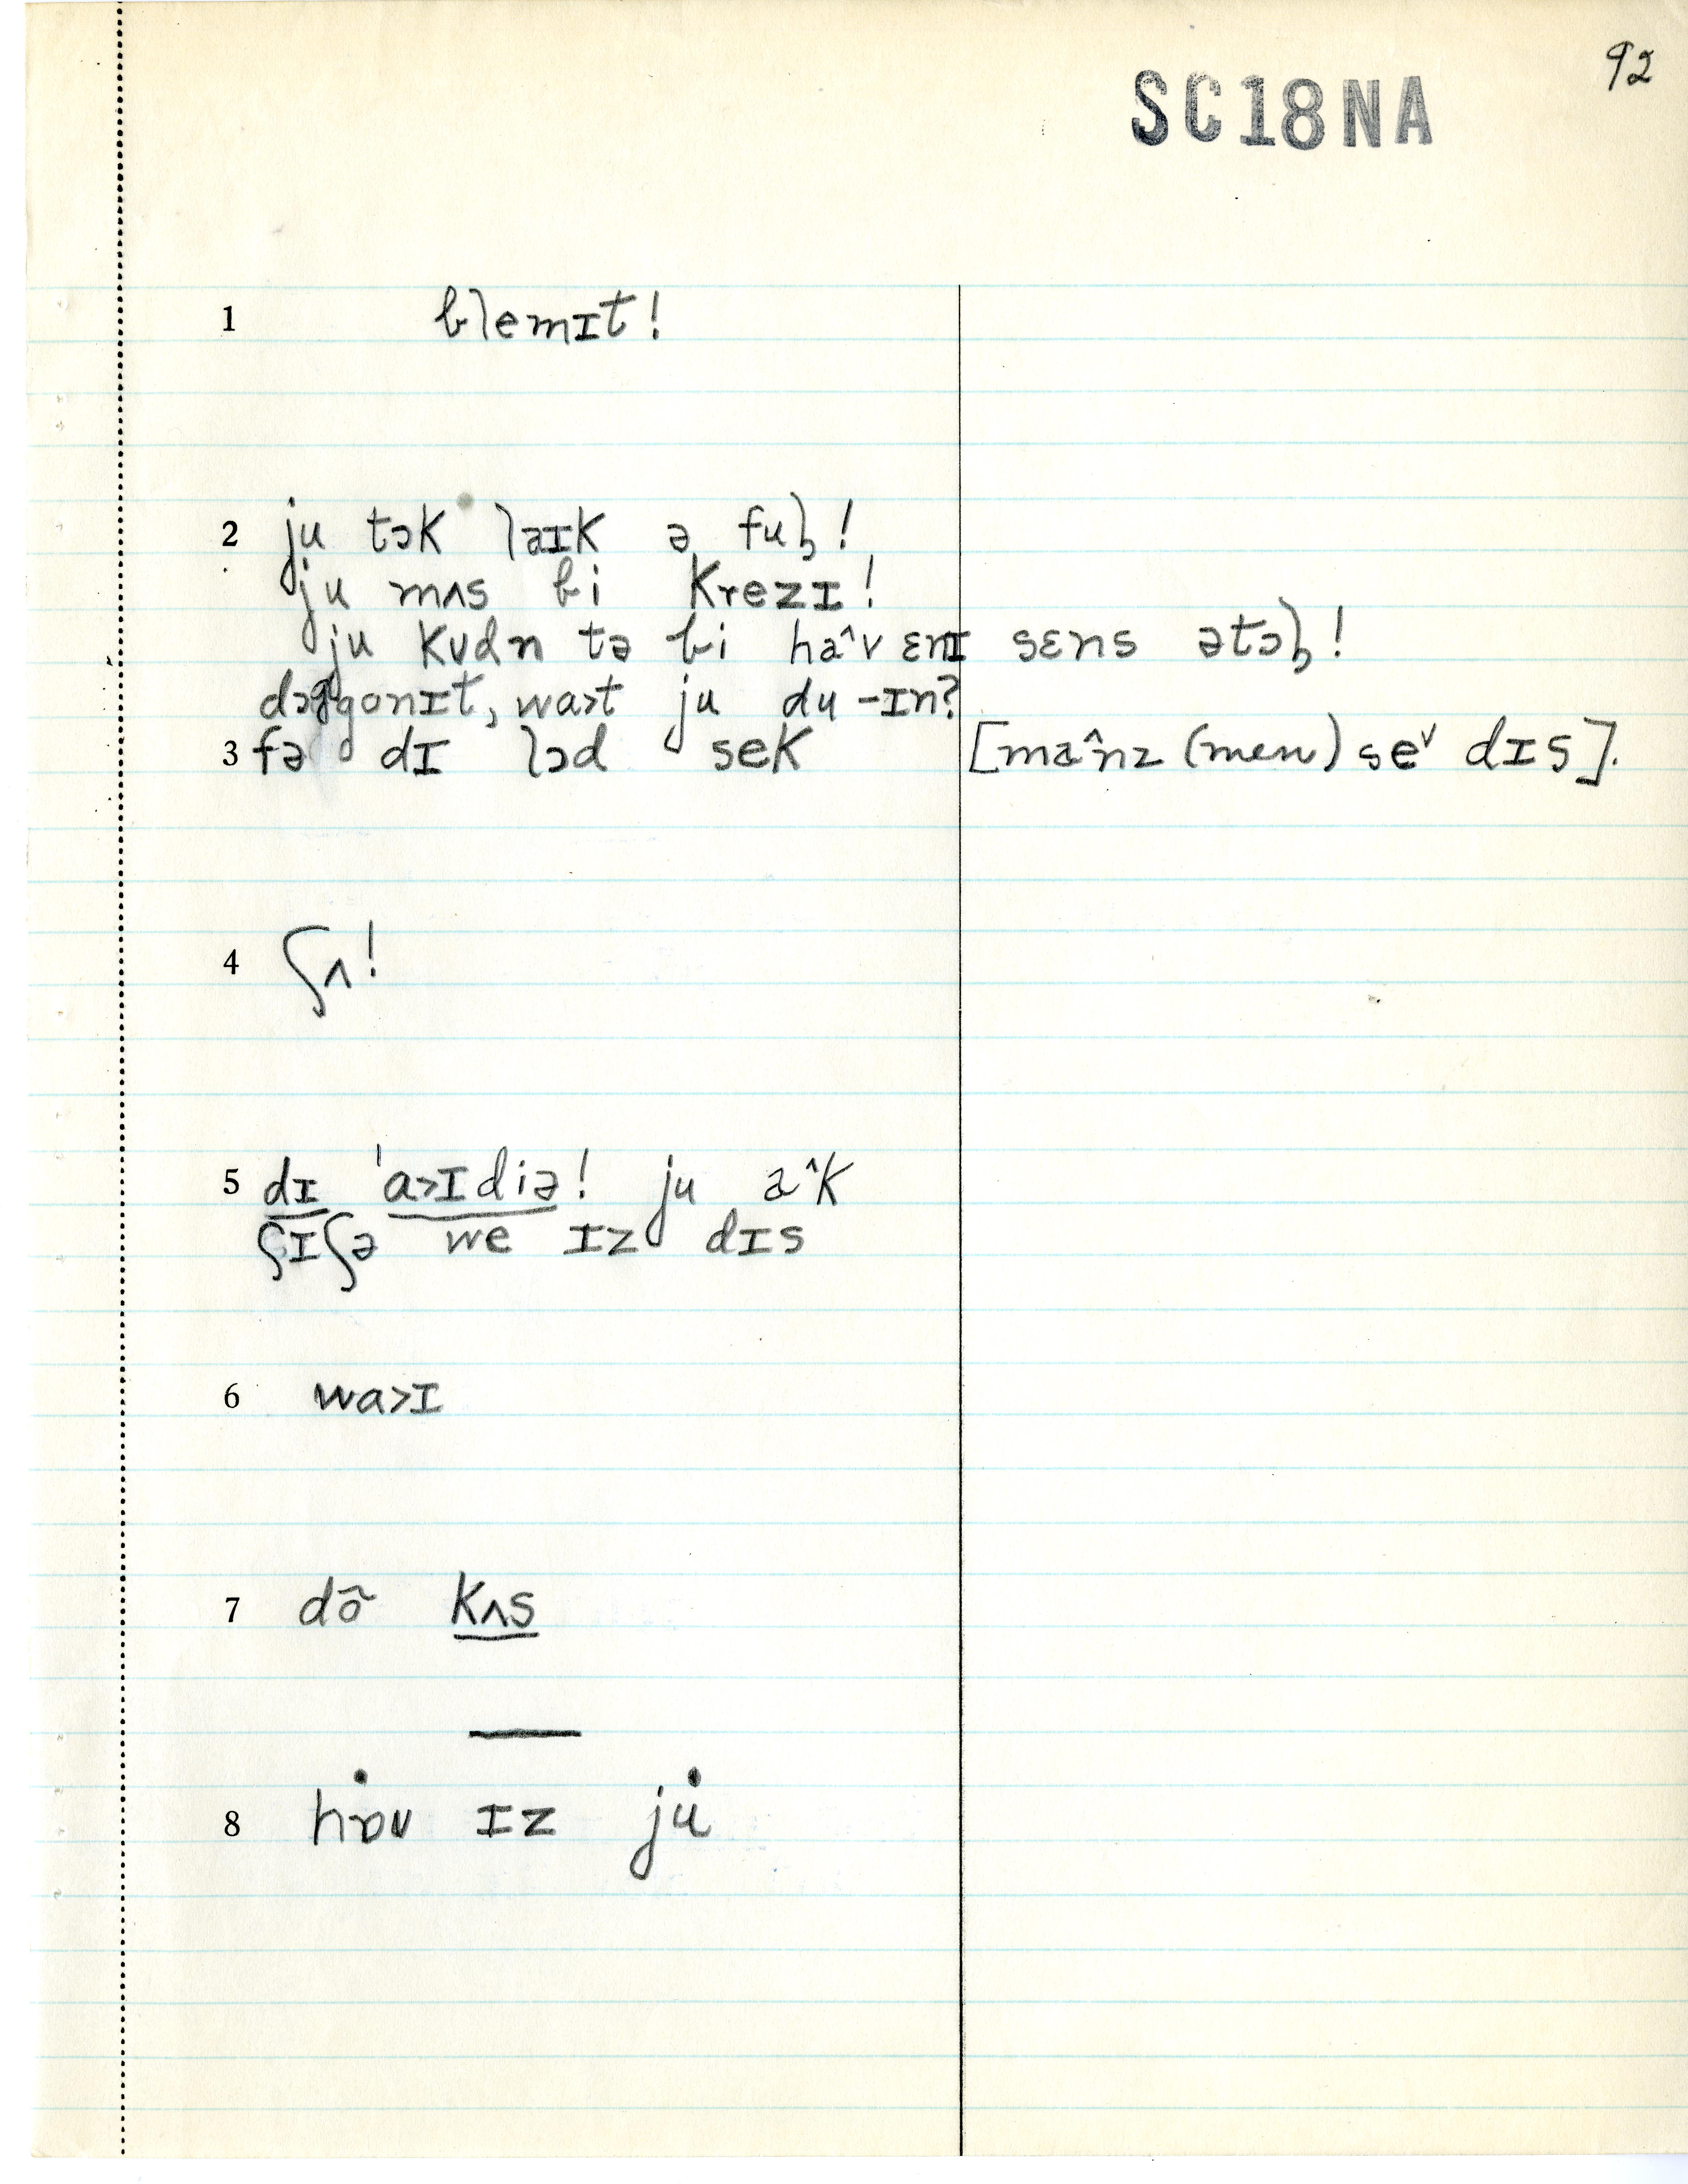 92
SC18NA
1 blemɪt!
2 ju tɔk laɪk ə fuɫ!
ju mʌs bi krezɪ!
ju kʊdn tə bi ha^v ɛnɪ sɛns ətɔɫ!
gonɪt, wa>t ju du-ɪn?
3 fə dɪ lɔd sek [ma^nz (men) se˅ dɪs].
4 ʃʌ!
5 dɪ 'a>ɪdiə! ju a^k
ʃɪʃə we ɪz dɪs
6 wa>ɪ
7 dõ kʌs
8 ɪz ju̇